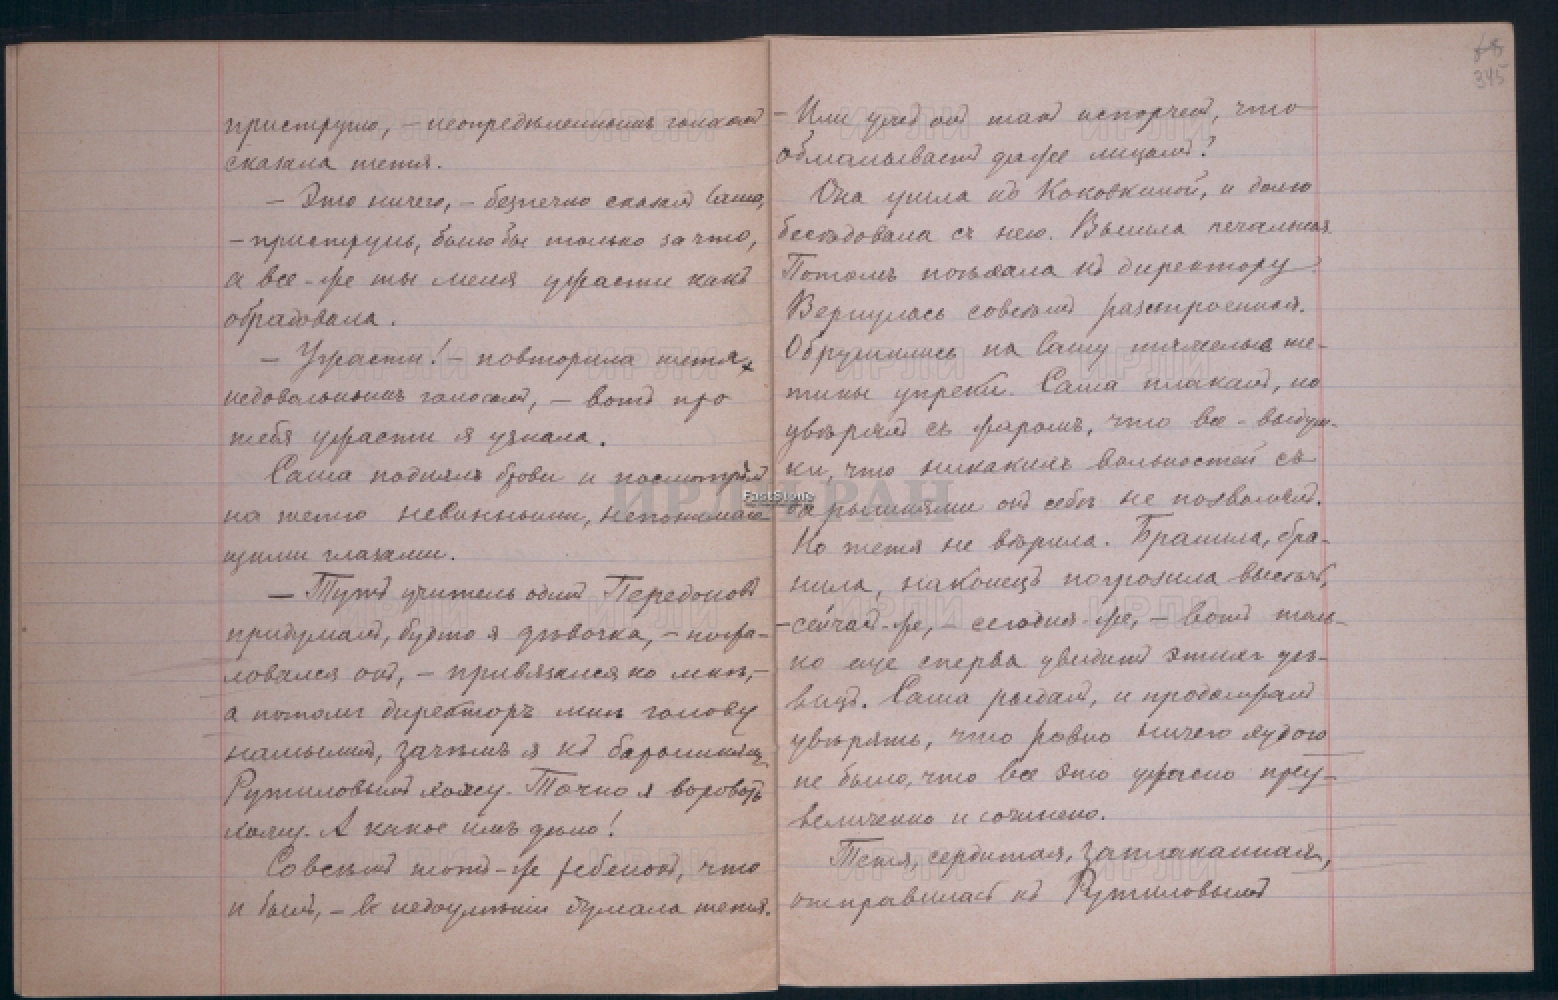 приструню, – неопредѣленнымъ голосомъ
сказала тетя.
– Это ничего, – безпечно сказалъ Саша,
– приструнь, было бы только за что,
а все-же ты меня ужасти какъ
обрадовала.
– Ужасти! – повторила тетя
недовольнымъ голосомъ, – вотъ про
тебя ужасти я узнала.
Саша поднялъ брови и посмотрѣлъ
на тетю невинными, непонимаю-
щими глазами.
– Тутъ учитель одинъ Передоновъ
придумалъ, будто я дѣвочка, – пожа-
ловался онъ, – привязался ко мнѣ, –
а потомъ директоръ мнѣ голову
намылилъ, зачѣмъ я къ барышнямъ
Рутиловымъ хожу. Точно я воровать
хожу. А какое имъ дѣло!
Совсѣмъ тотъ-же ребенокъ, что
и былъ, – въ недоумѣніи думала тетя.
– Или ужъ онъ такъ испорченъ, что
обманываетъ даже лицомъ?
Она ушла къ Коковкиной, и долго
бесѣдовала съ нею. Вышла печальная.
Потомъ поѣхала къ директору.
Вернулась совсѣмъ разстроенная.
Обрушились на Сашу тяжелые те-
тины упреки. Саша плакалъ, но
увѣрялъ съ жаромъ, что все – выдум-
ки, что никакихъ вольностей съ
барышнями онъ себѣ не позволялъ.
Но тетя не вѣрила. Бранила, бра-
нила, наконецъ погрозила высѣчь,
– сейчасъ-же, – сегодня-же, – вотъ толь-
ко еще сперва увидитъ этихъ дѣ-
вицъ. Саша рыдалъ, и продолжалъ
увѣрять, что ровно ничего худого
не было, что все это ужасно преу-
величено и сочинено.
Тетя, сердитая, заплаканная,
отправилась къ Рутиловымъ
345
ИРЛИ РАН
FastStone